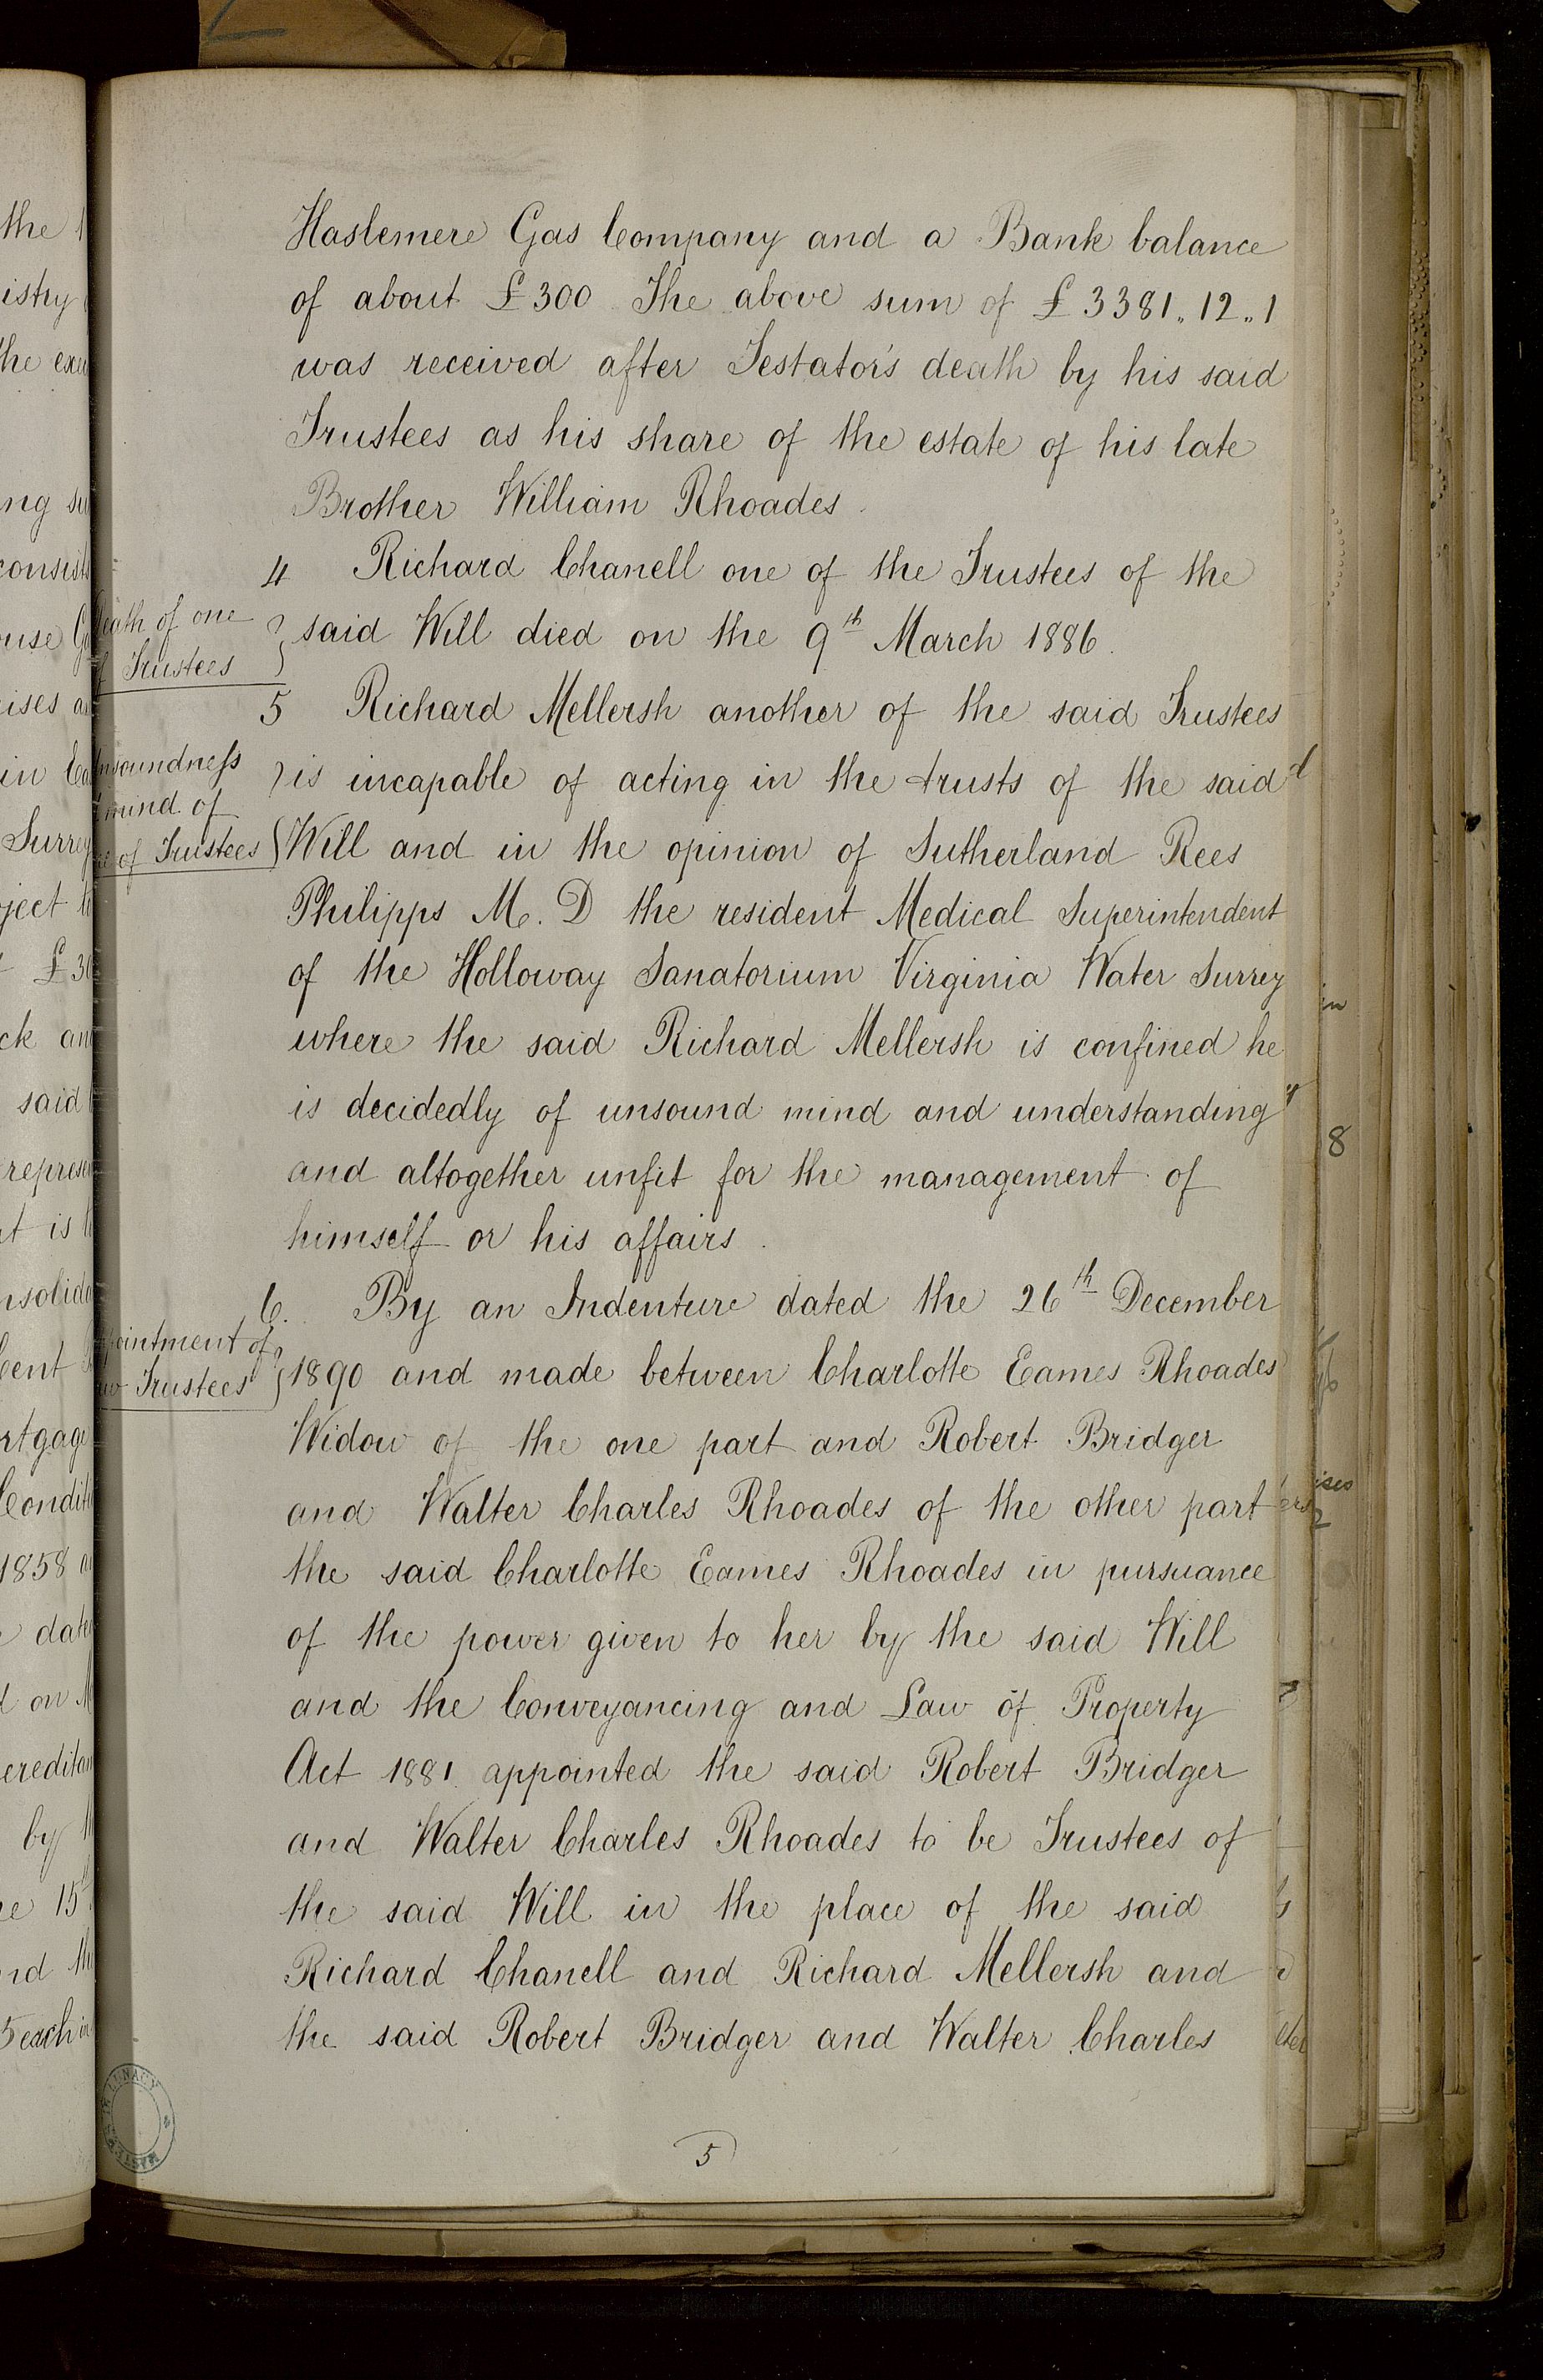 Haslemere Gas Company and a Bank balance
of about £300 The above sum of £3381,, 12,, 1
was received after Testator's death by his said
Trustees as his share of the estate of his late
Brother William Rhoades.
4 Richard Chanell one of the Trustees of the
eath of one
Trustees
said Will died on the 9th March 1886.
5 Richard Mellersh another of the said Trustees
nsoundness
mind of
of Trustees
is incapable of acting in the trusts of the said
Will and in the opinion of Sutherland Rees
Philipps M. D the resident Medical Superintendent
of the Holloway Sanatorium Virginia Water Surrey
where the said Richard Mellersh is confined he
is decidedly of unsound mind and understanding
and altogether unfit for the management of
himself or his affairs.
6. By an Indenture dated the 26th December
pointment of
Trustees
1890 and made between Charlotte Eames Rhoades
Widow of the one part and Robert Bridger
and Walter Charles Rhoades of the other part
the said Charlotte Eames Rhoades in pursuance
of the power given to her by the said Will
and the Conveyancing and Law of Property
Act 1881 appointed the said Robert Bridger
and Walter Charles Rhoades to be Trustees of
the said Will in the place of the said
Richard Chanell and Richard Mellersh and
the said Robert Bridger and Walter Charles
5